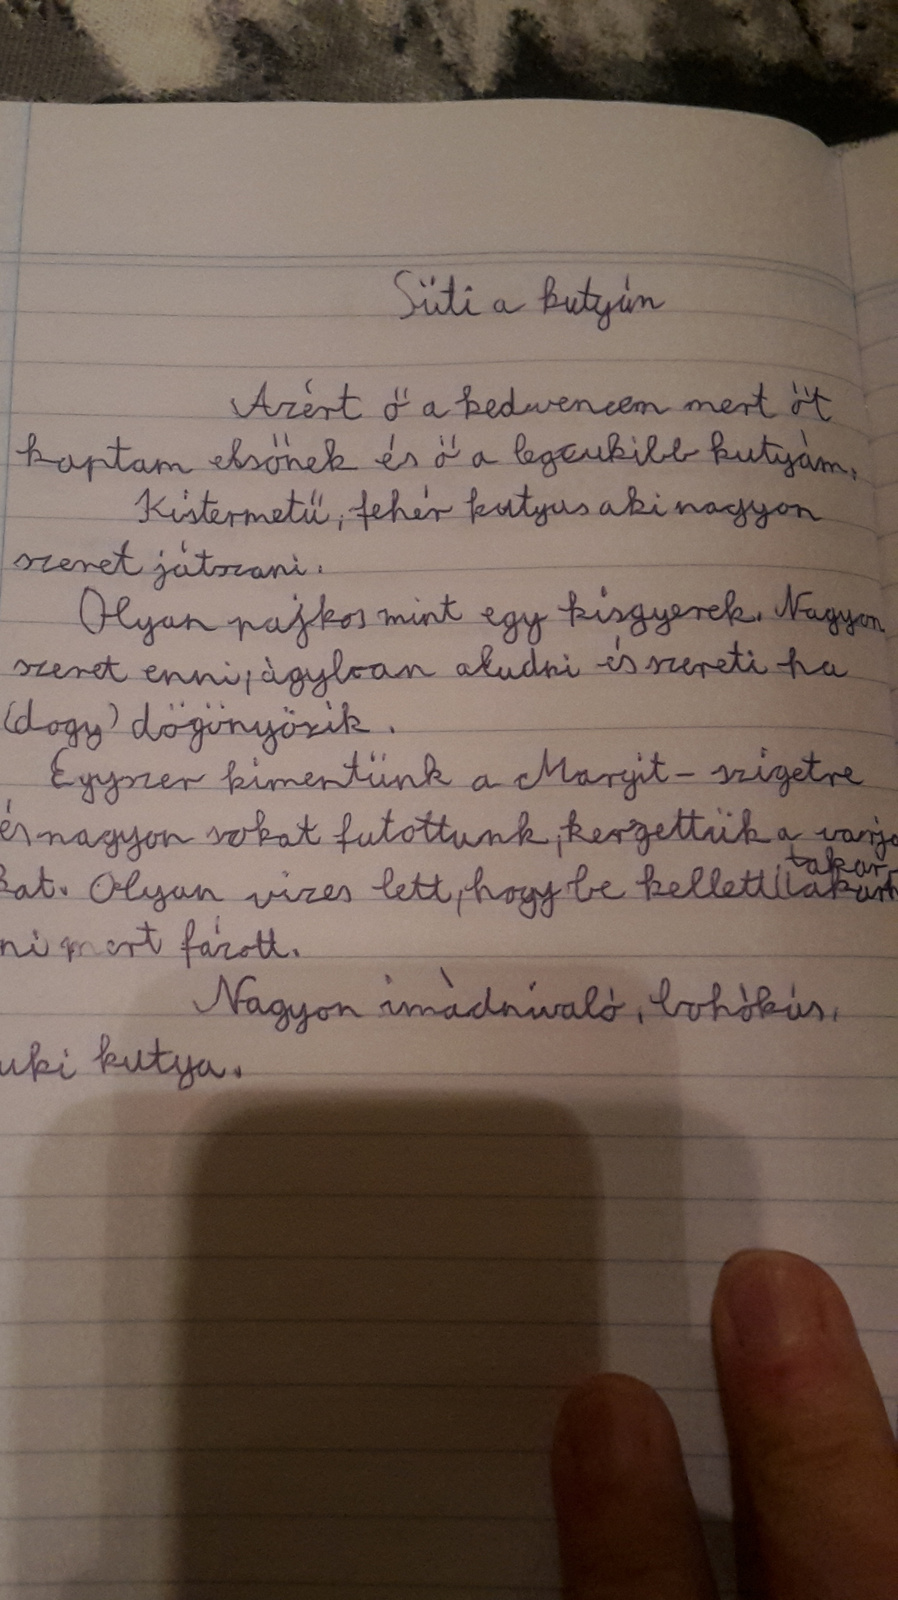 Süti a kutyán
Azért ő a kedvencem mert őt
kaptam elsőnek és ő a legcukibb kutyám.
Kistermetű, fehér kutyus aki nagyon
szeret játszani.
Olyan pajkos mint egy kisgyerek. Nagyon
szeret enni, ágyban aludni és szereti ha
(dogy) dögönyözik.
Egyszer kimentünk a Margit-szigetre
és nagyon sokat futottunk, kergettük a varja
kat. Olyan vizes lett, hogy be kellett takar
ni mert fázott.
Nagyon imádnivaló, bohókás,
uki kutya.